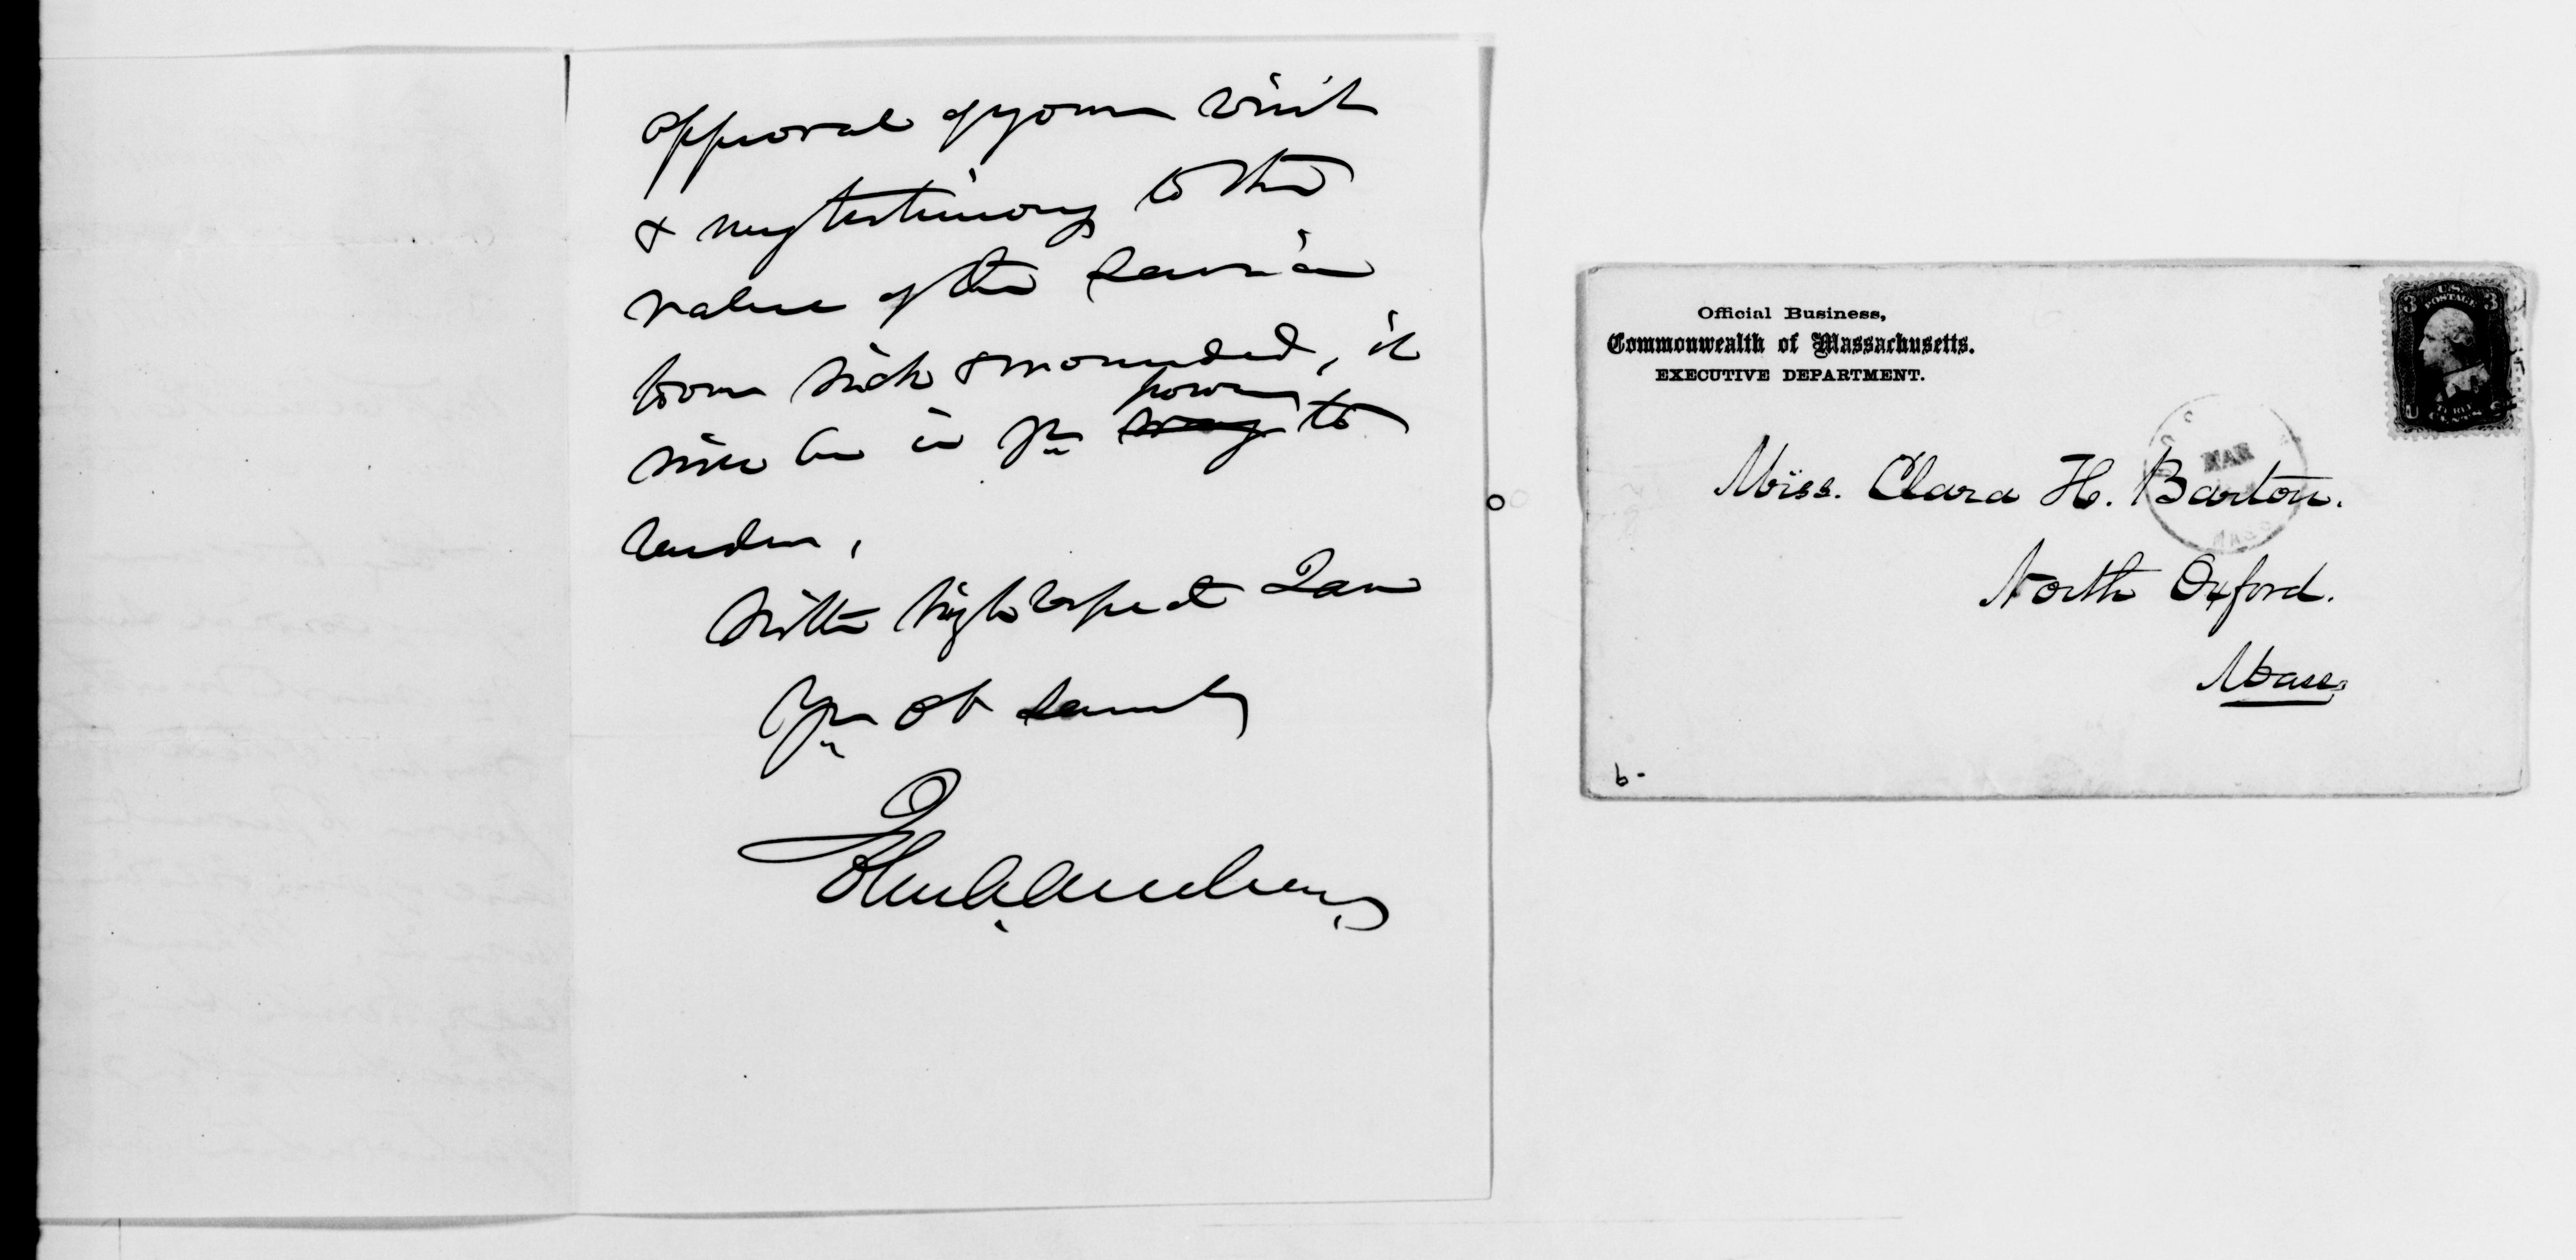 approval of your visit
& my testimony to the
value of the service
to our sick & wounded, it
will be in yr power
way to
render,
With high respect I am
Yr ob servt,
John A. Andrew,
Official Business,
Commonwealth of Massachusetts.
EXECUTIVE DEPARTMENT.
U.S. POSTAGE
3 3
MAR
MASS
Miss. Clara H. Barton.
North Oxford.
Mass.
6-